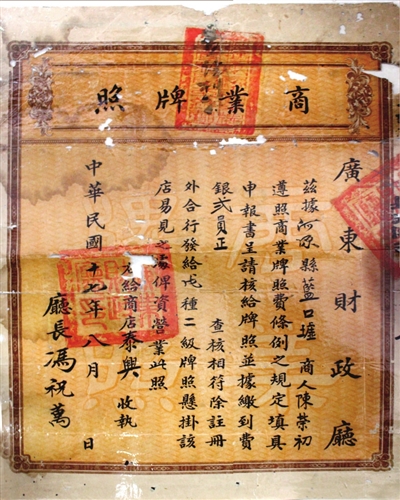 商業牌照
廣東財政廳
茲據河源縣藍口墟 商人陳榮初
遵照商業牌照費條例之規定填具
申報書呈請核給牌照並據繳到費
銀弍員正 查核相符除註冊
外合行發給戊種二級牌照懸掛該
店易見之處俾資營業此照
右給商店泰興 收執
中華民國十七年八月 日
廳長馮祝萬